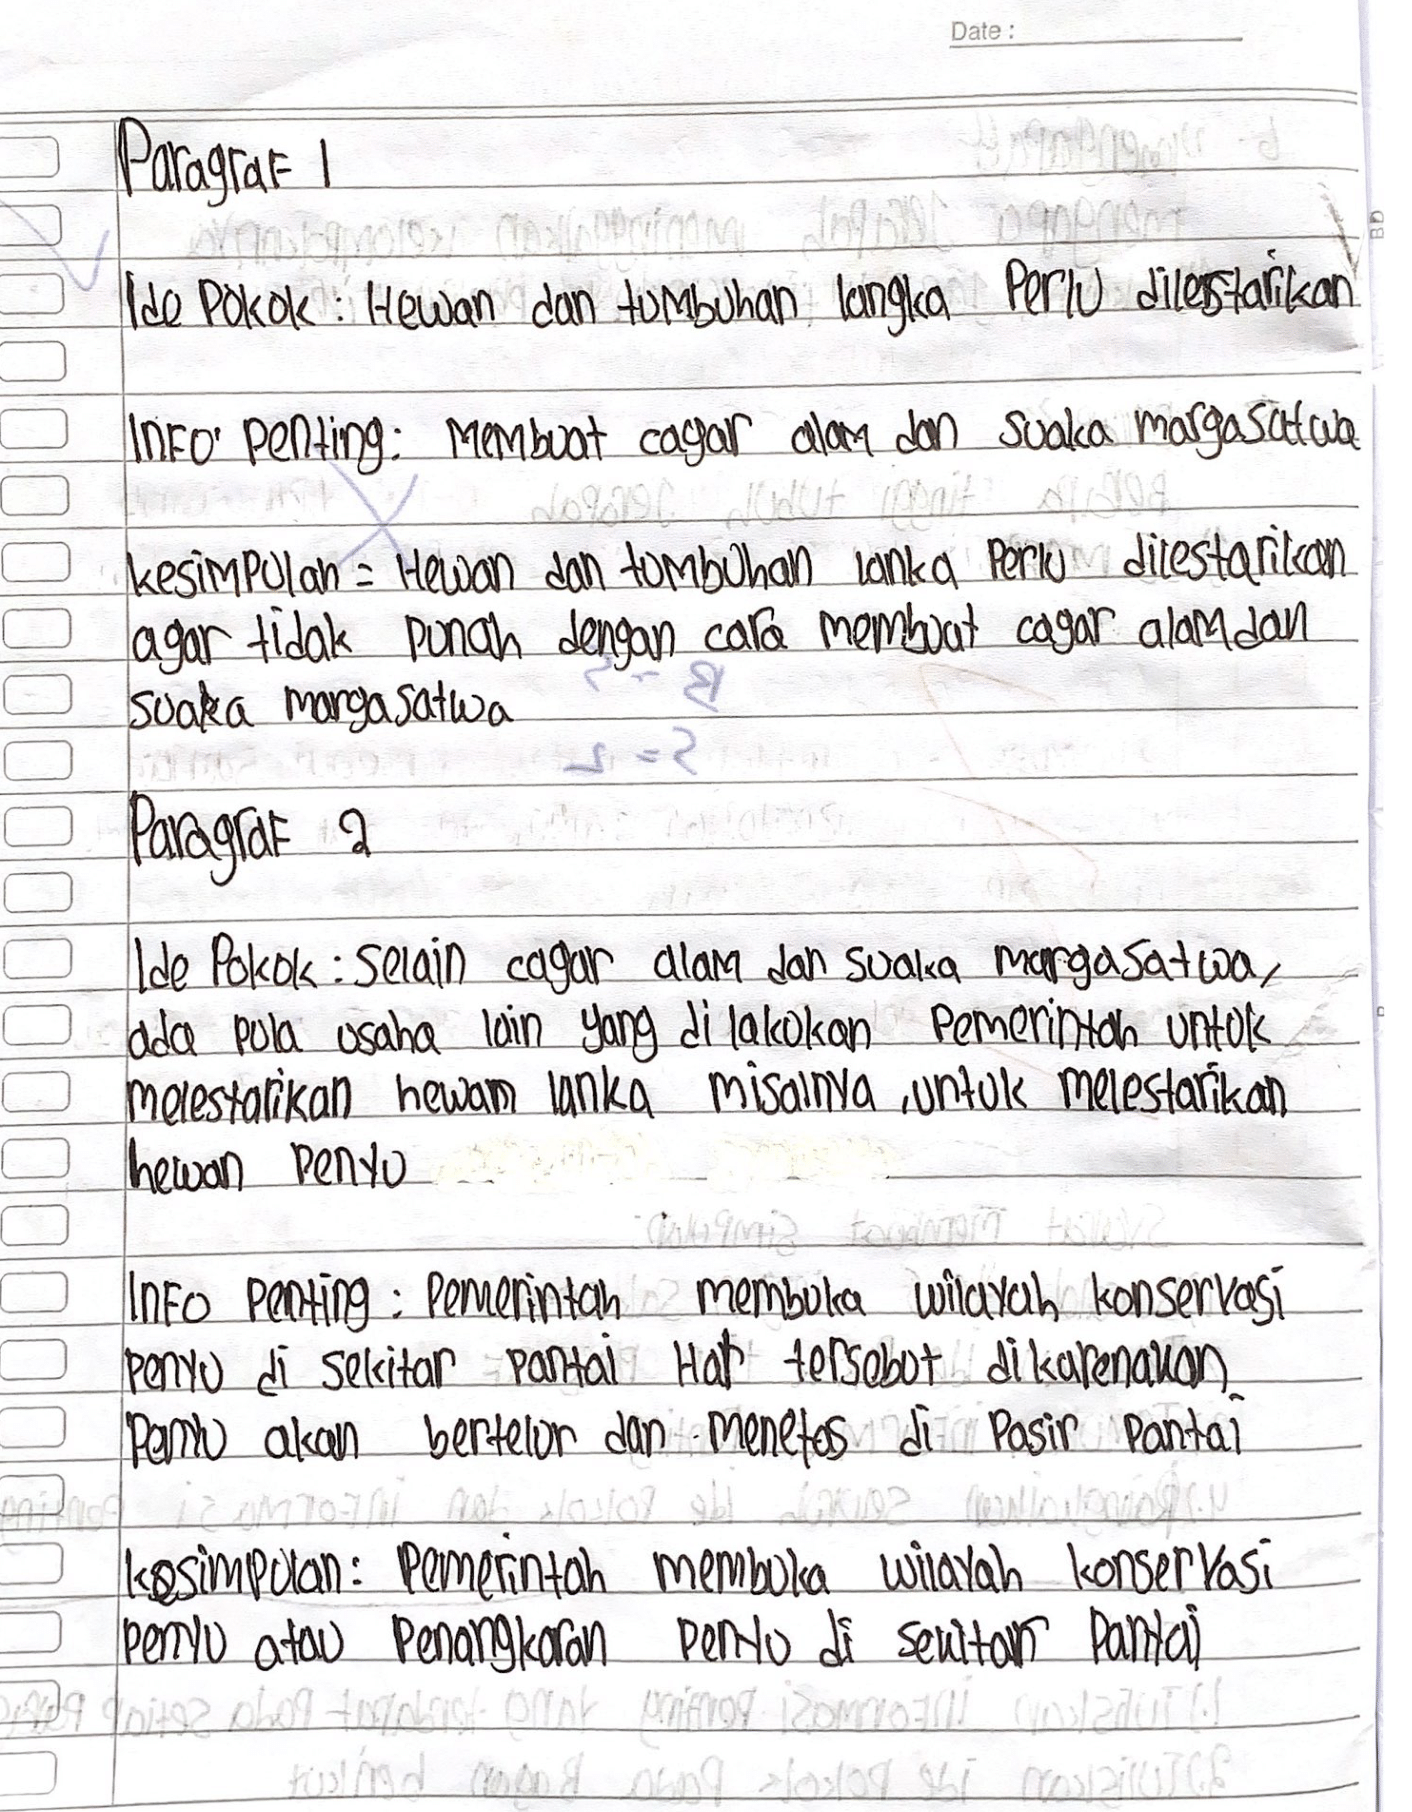 Date :
Paragraf 1
Ide Pokok : Hewan dan tumbuhan langka Perlu dilestarikan
Info Penting : Membuat cagar alam dan suaka margasatwa
kesimpulan = Hewan dan tumbuhan lanka Perlu dilestarikan
agar tidak punah dengan cara membuat cagar alam dan
suaka margasatwa
Paragraf 2
Ide Pokok : selain cagar alam dan suaka margasatwa,
ada pula usaha lain yang di lakukan Pemerintah untuk
melestarikan hewam lanka misalnya , untuk melestarikan
hewan Penyu
Info Penting : Pemerintah membuka wilayah konservasi
penyu di sekitar pantai Hal tersebut dikarenakan
Penyu akan bertelur dan menetas di Pasir Pantai
kesimpulan : Pemerintah membuka wilayah konservasi
penyu atau Penangkaran penyu di sekitar Pantai